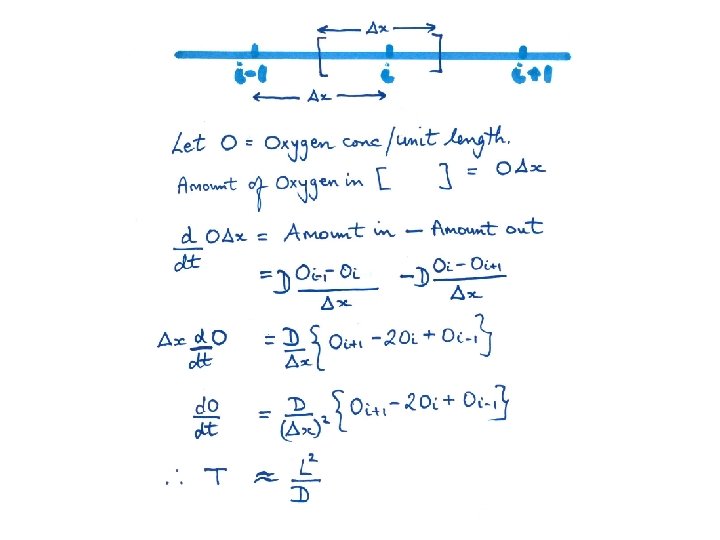 ← Δx →
[ ]
i-1 i i+1
← Δx →
Let O = Oxygen conc/unit length.
Amount of Oxygen in [ ] = OΔx
d/dt OΔx = Amount in - Amount out
= D (Oi-1 - Oi)/Δx - D (Oi - Oi+1)/Δx
Δx dO/dt = D/Δx {Oi+1 - 2Oi + Oi-1}
dO/dt = D/(Δx)² {Oi+1 - 2Oi + Oi-1}
∴ T ≈ L²/D